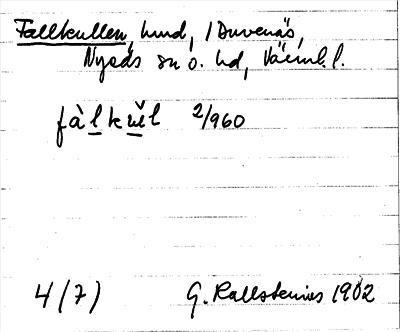 Fallkullen, hmd, 1 Duvenäs,
Nyeds sn o. hd, Värml. l.
fàlkul 2/960
4 (7) G. Kallstenius 1902